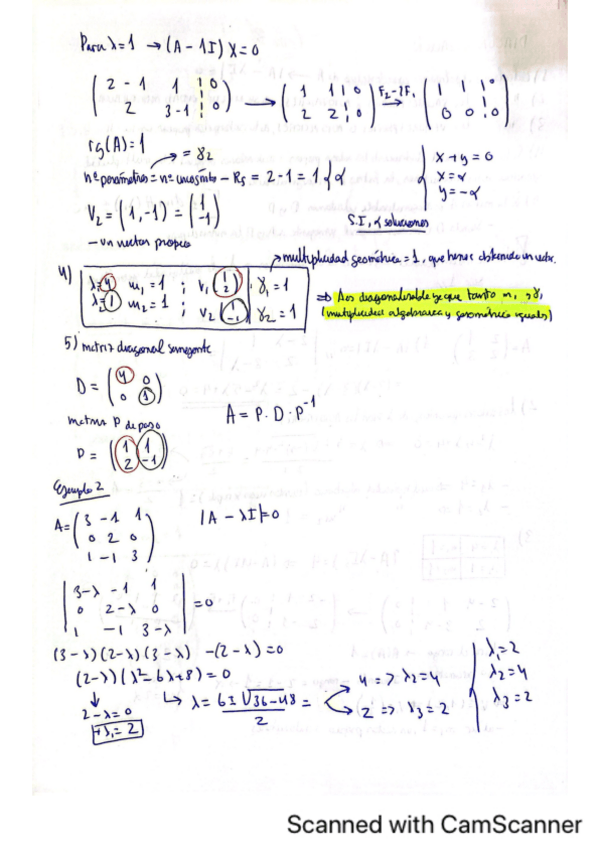 Para λ=1 → (A - 1I) X = 0
( 2 - 1 1 | 0 ) → ( 1 1 | 0 ) F2-2F1 → ( 1 1 | 0 )
( 2 3-1 | 0 ) ( 2 2 | 0 ) ( 0 0 | 0 )
rg(A) = 1
= γ2
nº parámetros = nº incógnitas - Rg = 2 - 1 = 1 { α
x + y = 0
x = α
y = -α
V2 = (1, -1) = ( 1 -1 )
S.I, α soluciones
- un vector propio
→ multiplicidad geométrica = 1, que hemos obtenido un vector.
4) λ1=4 m1 = 1 ; v1 ( 1 2 ) γ1 = 1
λ2=1 m2 = 1 ; v2 ( 1 -1 ) γ2 = 1
⇒ A es diagonalizable ya que tanto m1 y γ1
(multiplicidad algebraica y geométrica iguales)
5) matriz diagonal semejante
D = ( 4 0 )
( 0 1 )
A = P · D · P^-1
matriz P de paso
P = ( 1 1 )
( 2 -1 )
Ejemplo 2
A = ( 3 -1 1 ) |A - λI| = 0
( 0 2 0 )
( 1 -1 3 )
| 3-λ -1 1 |
| 0 2-λ 0 | = 0
| 1 -1 3-λ |
(3-λ)(2-λ)(3-λ) -(2-λ) = 0
(2-λ)(λ² - 6λ + 8) = 0
2 - λ = 0
λ1 = 2
λ = 6 ± √36-48 / 2 =
4 => λ2 = 4
2 => λ3 = 2
λ1 = 2
λ2 = 4
λ3 = 2
Scanned with CamScanner